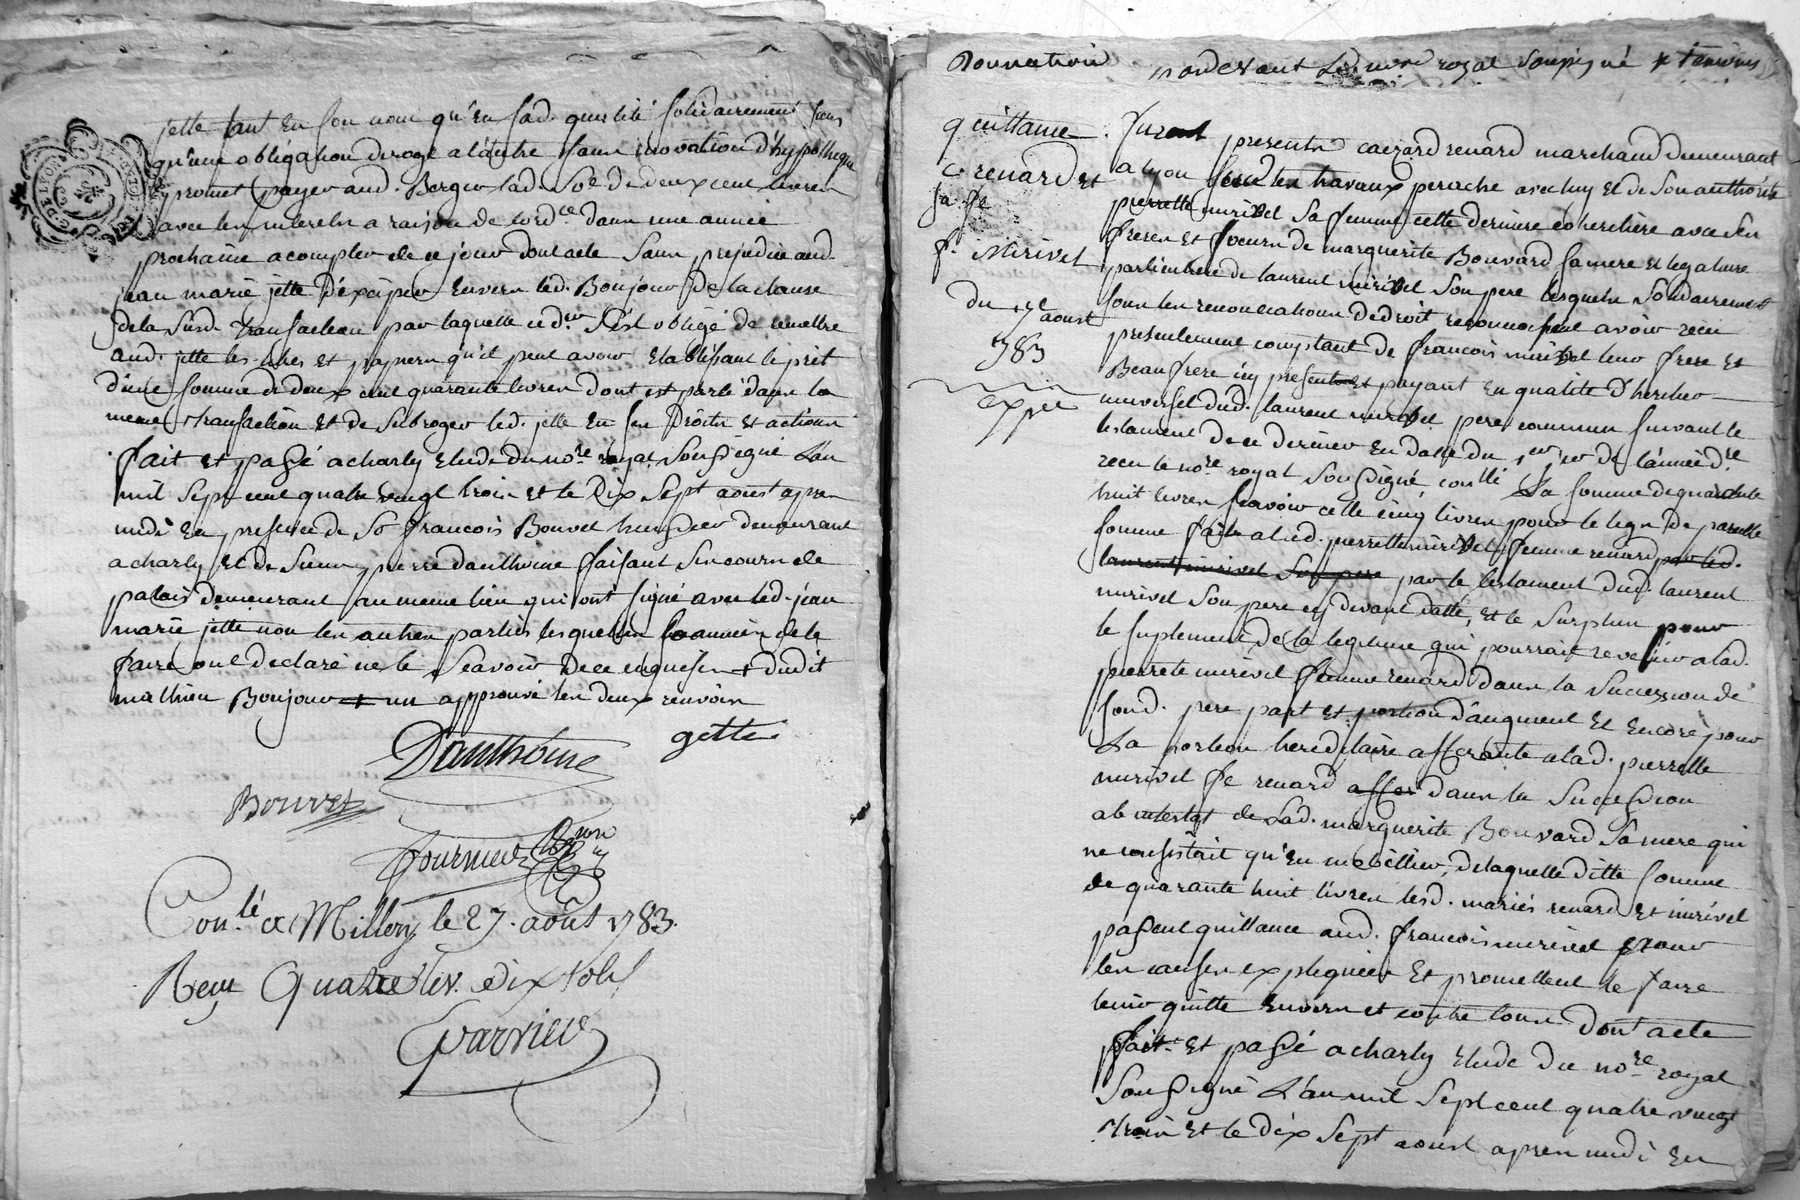 jette tant en son nom qu'en lad. qualité solidairement sans
qu'une obligation deroge a l'autre sans inovation d'hypotheque
promet payer aud. Berger lad. So.e de deux cent livres
avec les interets a raison de lord.ce dans une année
prochaine a compter de ce jour dont acte sans prejudice aud.
jean marie jette d'éxciper envers led. Bonjour de la clause
de la susd. transaction par laquelle ce d.er s'est obligé de remettre
aud. jette les titres et papiers qu'il peut avoir etablissant le prêt
d'une somme de deux cent quarante livres dont est parlé dans la
meme transaction et de subroger led. jette en ses droits et actions
fait et passé a charly etude du no.re royal soussigné L'an
mil sept cent quatre vingt trois et le dix sept aoust apres
midi en presence de S.r francois Bouvet huissier demeurant
a charly et de Sieur pierre dauthoine faisant ses cours de
palais demeurant au meme lieu qui ont signé avec led. jean
marie jette non les autres parties lesquelles de
faire ont declaré ne le scavoir de ce enquises + dudit
mathieu Bonjour + un approuvé les deux renvois
gette
Dauthoine
Bouvet
fournier
Con.lé a Millery le 27. août 1783.
Reçu Quatre liv. dix sols
Donnation
quittance
C. renard et
sa fe
f. Mirivel
du 17e aoust
1783
expée
pardevant Le no.re royal soussigné & temoins
furent presents caezard renard marchand demeurant
a lyon sur les travaux perache avec luy et de son authorité
pierrette mirivel sa femme cette derniere coheritiere avec ses
freres et soeurs de marguerite Bouvard sa mere et legataire
particuliere de laurent mirivel son pere lesquels solidairement
sous les renonciations de droit reconnoissent avoir recu
presentement comptant de francois mirivel leur frere et
Beaufrere icy present et payant en qualité d'heritier
universel dud. laurent mirivel pere commun suivant le
testament de ce dernier en datte du de l'année d.re
recu le no.re royal soussigné con.llé La somme de quarante
huit livres scavoir celle cinq livres pour le legs de pareille
somme faite a lad. pierrette mirivel femme renard par led.
laurent mirivel son pere par le testament dud. laurent
mirivel son pere cy devant datté, et le surplus pour
le suplement de la legitime qui pourrait revenir a lad.
pierrete mirivel femme renard dans la succession de
sond. pere part et portion d'augment et encore pour
La portion hereditaire afferante a lad. pierrette
mirivel fe renard affer dans la succession
ab intestat de Lad. marguerite Bouvard sa mere qui
ne consistait qu'en mobillier, de laquelle ditte somme
de quarante huit livres lesd. mariés renard et mirivel
passent quittance aud. francois mirivel pour
les causes expliquées et promettent le faire
tenir quitte envers et contre tous dont acte
fait et passé a charly etude du no.re royal
soussigné L'an mil sept cent quatre vingt
trois et le dix sept aoust apres midi en